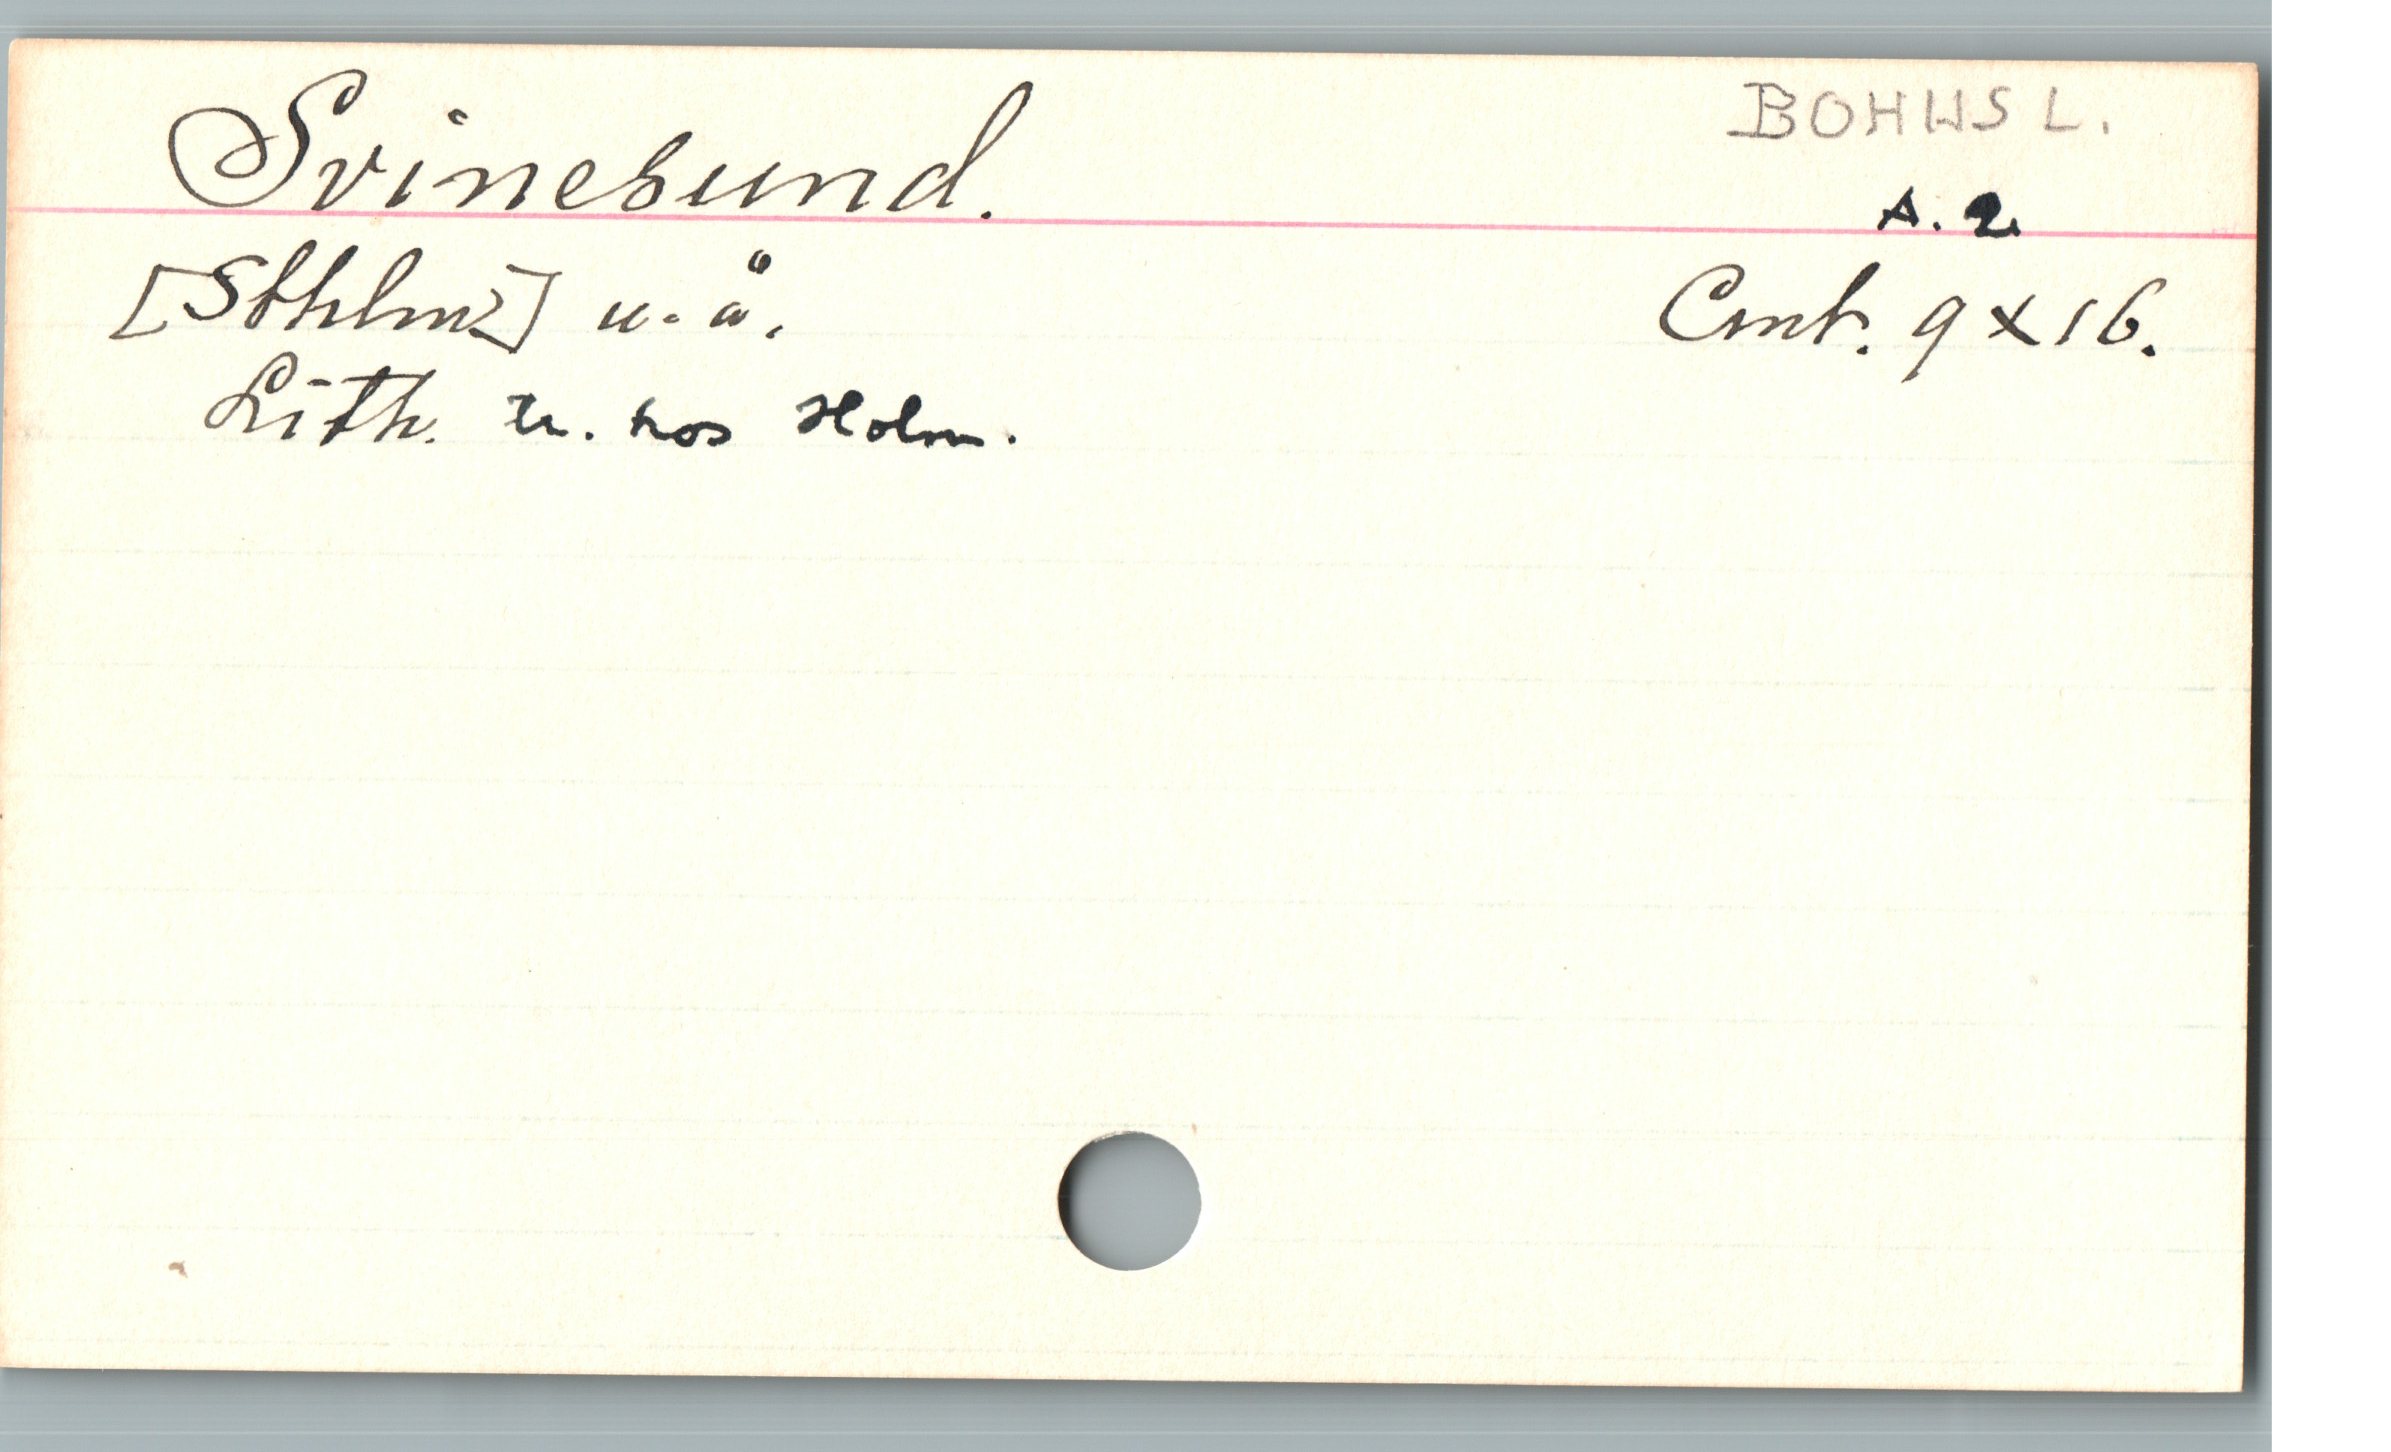 Svinesund.
BOHUSL.
A. 2.
[Sthlm] u. å.
Cmt. 9 x 16.
Lith. tr. hos Holm.